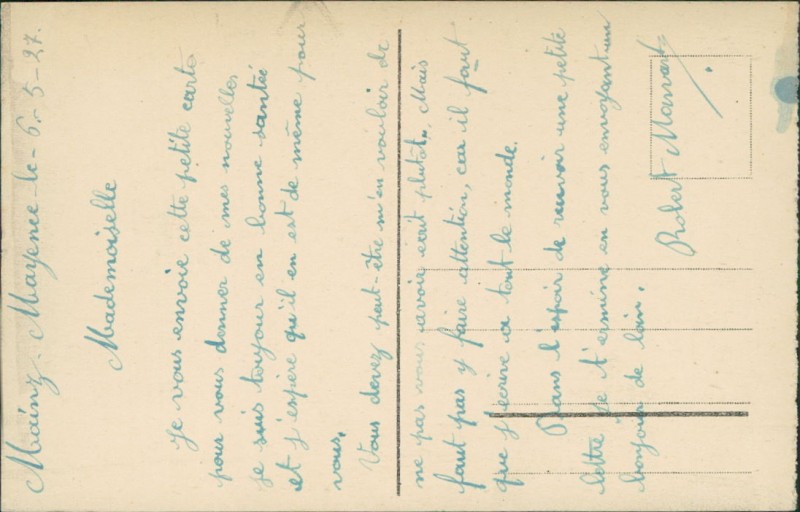 Mainz. Mayence-le-6-5-27.
Mademoiselle
Je vous envoie cette petite carte
pour vous donner de mes nouvelles
je suis toujour en bonne santée
et j'espère qu'il en est de même pour
vous.
Vous devez peut-être m'en vouloir de
ne pas vous avoir écrit plutôt. Mais
faut pas y faire attention, car il faut
que j'écrive a tout le monde.
Dans l'espoir de recevoir une petite
lettre Je t'ermine en vous envoyant un
bonjour de loin.
Robert